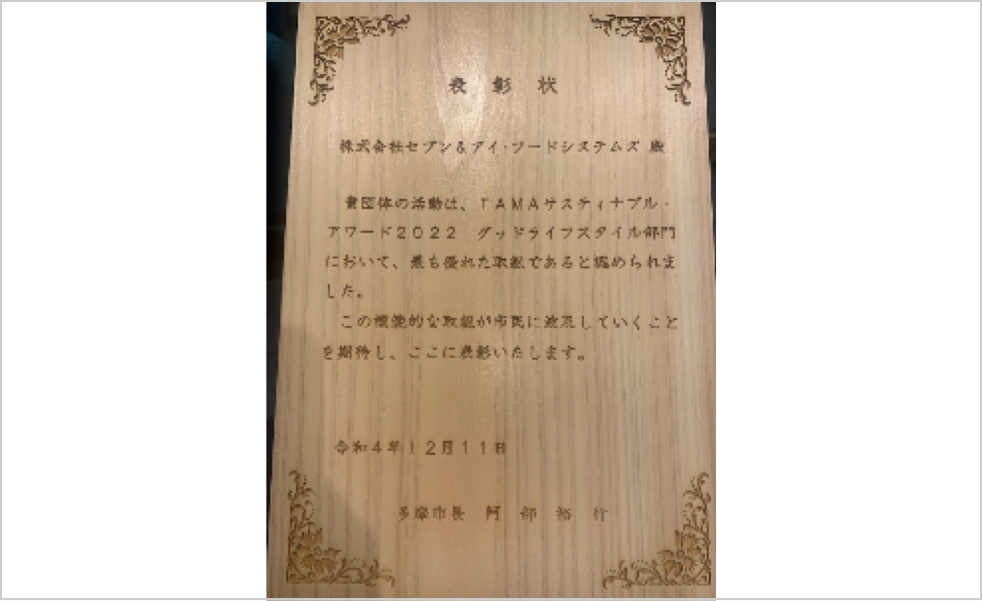 表彰状
株式会社セブン&アイ・フードシステムズ 殿
貴団体の活動は、TAMAサスティナブル・
アワード2022 グッドライフスタイル部門
において、最も優れた取組であると認められま
した。
この模範的な取組が市民に波及していくこと
を期待し、ここに表彰いたします。
令和4年12月11日
多摩市長 阿部裕行